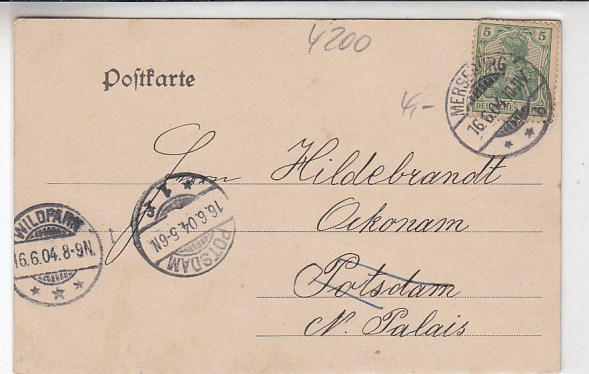 4200
5 5
DEUTSCHES
MERSEBURG
16.6.04.
Postkarte
4,-
Hildebrandt
Oekonam
Potsdam
N. Palais
WILDPARK
16.6.04.8-9N.
POTSDAM
16.6.04.5-6N.
1